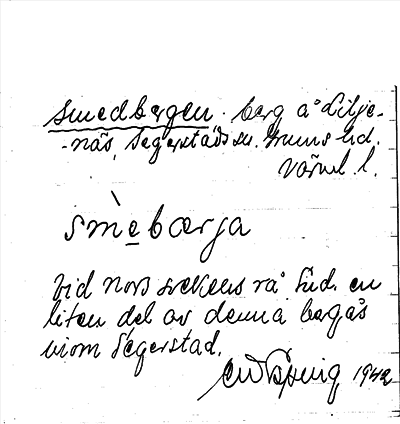 Smedbergen. berg å Lilje-
-näs, Segerstads sn. Grums hd.
Värml. l.
smèbærja
Vid Nors sockens rå. Endast en
liten del av denna bergås
inom Segerstad.
1942